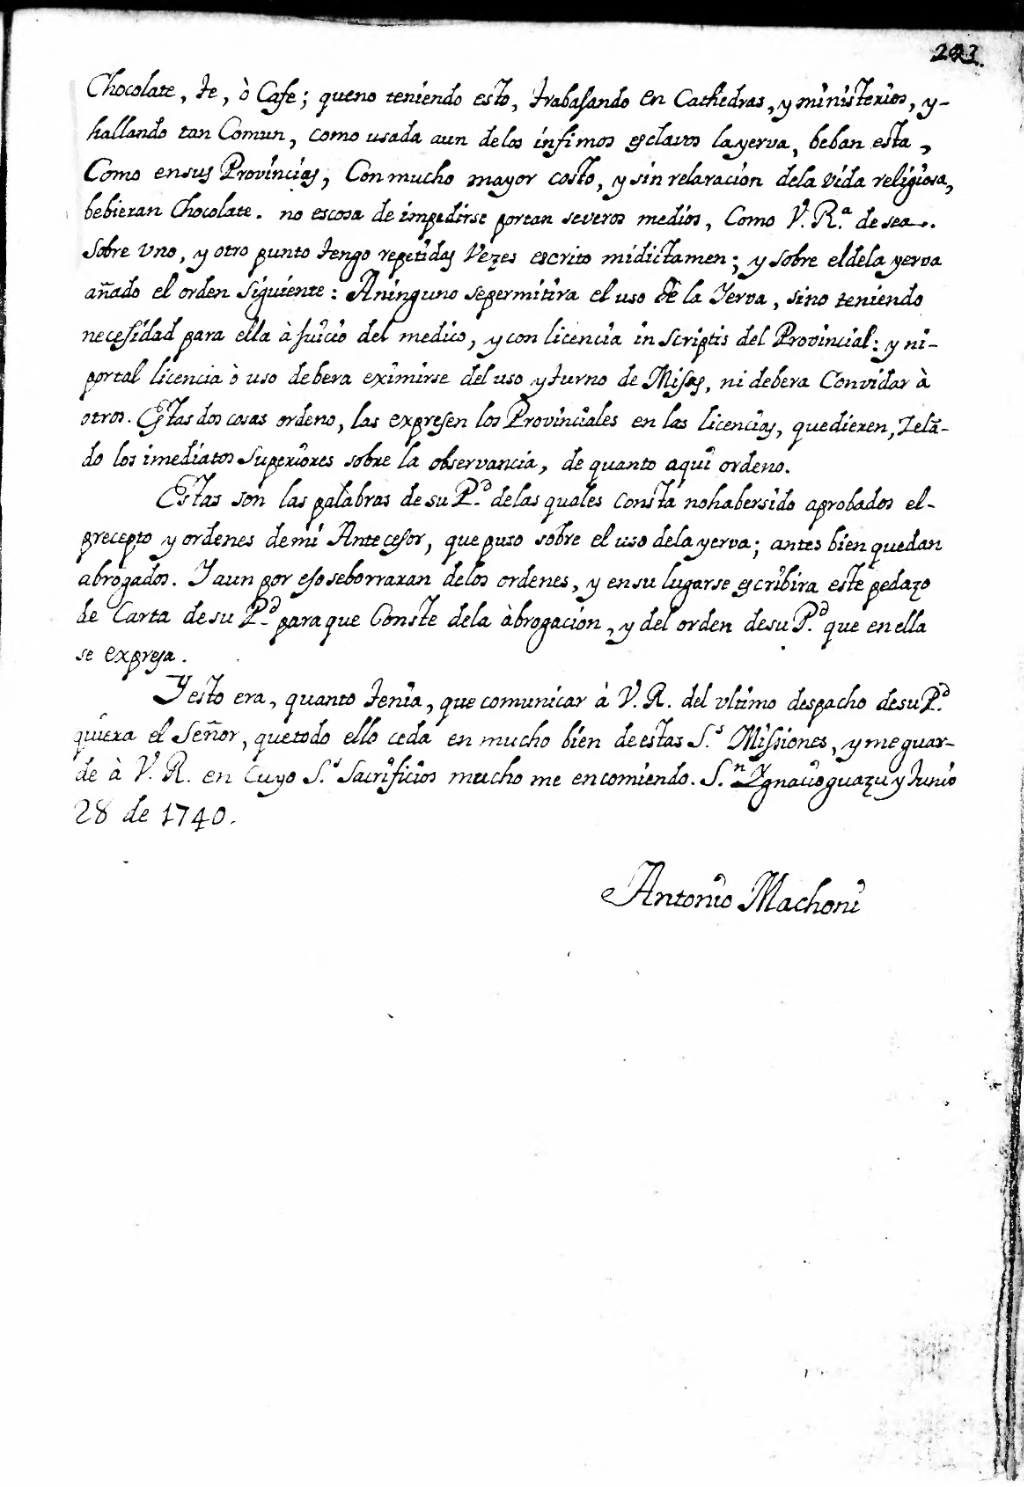 Chocolate, te, ò Cafe; queno teniendo esto, trabajando en Cathedras, y ministerios, y-
hallando tan Comun, como usada aun delos infimos esclavos layerva, beban esta,
Como ensus Provincias, Con mucho mayor costo, y sin relaxacion dela vida religiosa,
bebieran Chocolate. no escosa de impedirse portan severos medios, Como V. R.ª desea.
Sobre Uno, y otro punto tengo repetidas Vezes escrito midictamen; y sobre eldela yerva
añado el orden siguiente: Aninguno sepermitira el uso de la Yerva, sino teniendo
necessidad para ella à juicio del medico, y con licencia in scriptis del Provincial: y ni-
portal licencia ò uso debera eximirse del uso y turno de Missas, ni debera Convidar à
otros. Estas dos cosas ordeno, las expresen los Provinciales en las licencias, quedieren, Zelã-
do los imediatos Superiores sobre la observancia, de quanto aqui ordeno.
Estas son las palabras de su P.d delas quales Consta nohabersido aprobados el-
precepto y ordenes demi Antecesor, que puso sobre el uso delayerva; antes bien quedan
abrogados. Y aun por eso seborraran delos ordenes, y ensu lugarse escribira este pedazo
de Carta de su P.d paraque Conste dela àbrogacion, y del orden desu P.d que en ella
se expresa.
Y esto era, quanto tenia, que comunicar à V. R. del vltimo despacho desu P.d
quiera el Señor, quetodo ello ceda en mucho bien deestas S.s Missiones, y meguar-
de à V. R. en Cuyo S.s Sacrificios mucho me encomiendo. S.n Ygnacio guazu y Junio
28 de 1740.
Antonio Machoni